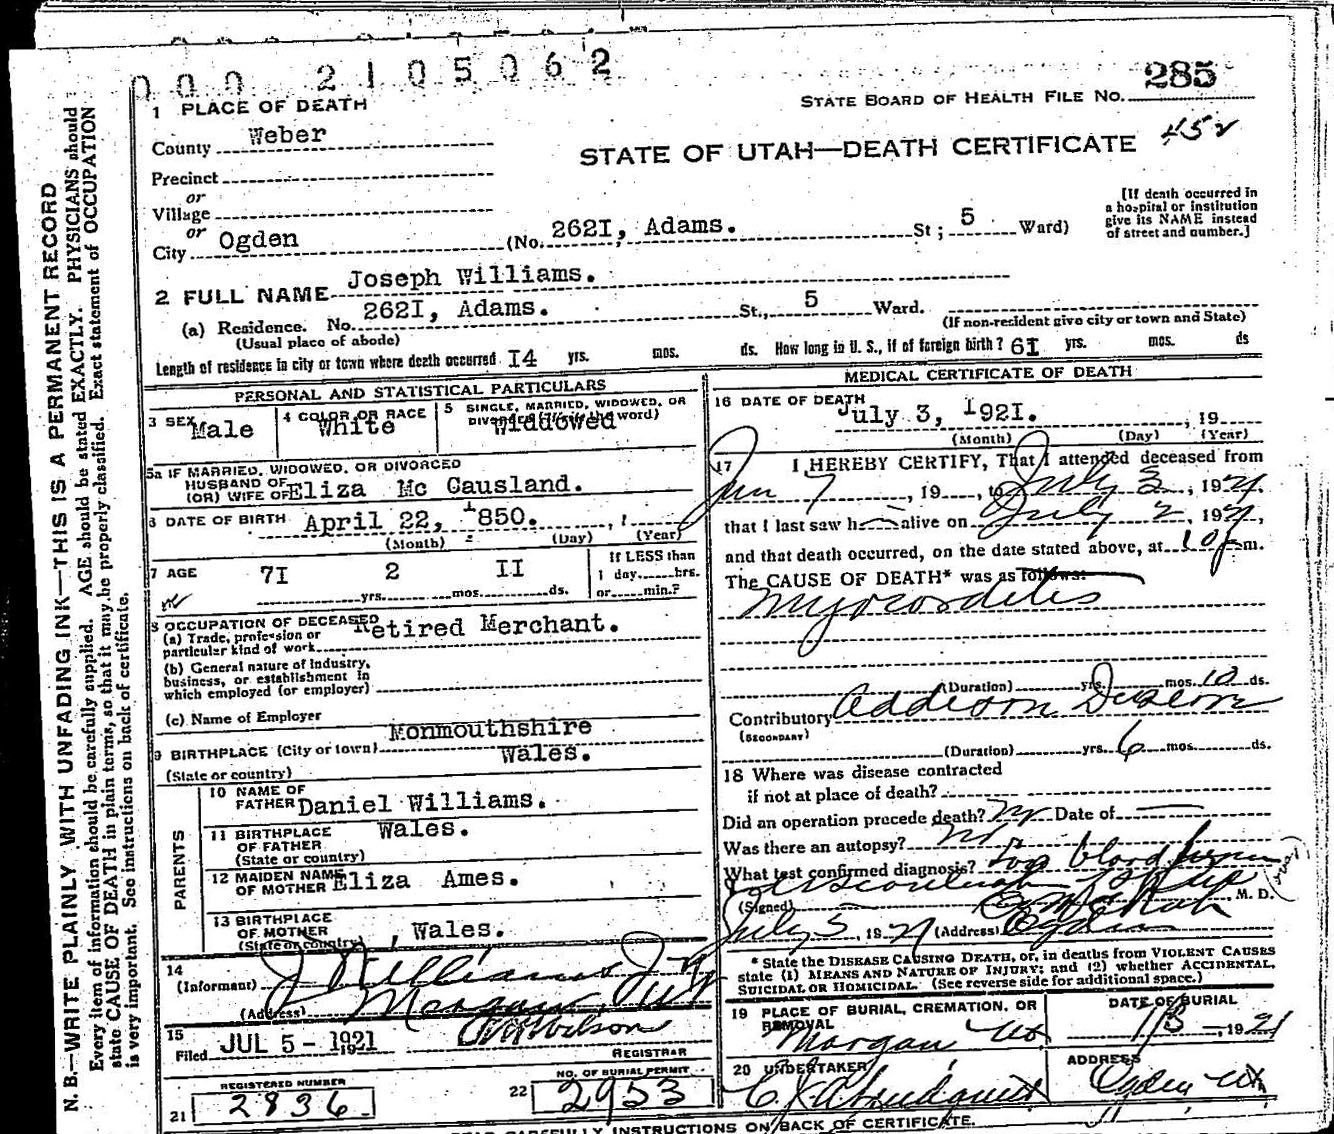 000 2105062
285
STATE BOARD OF HEALTH FILE NO.
452
1 PLACE OF DEATH
County Weber
STATE OF UTAH—DEATH CERTIFICATE
Precinct
or
Village
or
City Ogden (No. 262I, Adams. St; 5 Ward)
[If death occurred in
a hospital or institution
give its NAME instead
of street and number.]
2 FULL NAME Joseph Williams.
(a) Residence. No. 262I, Adams. St., 5 Ward.
(Usual place of abode)
(If non-resident give city or town and State)
Length of residence in city or town where death occurred I4 yrs. mos. ds. How long in U. S., if of foreign birth? 6I yrs. mos. ds
PERSONAL AND STATISTICAL PARTICULARS
3 SEX Male
4 COLOR OR RACE White
5 SINGLE, MARRIED, WIDOWED, OR
DIVORCED (Write the word) Widdowed
5a IF MARRIED, WIDOWED, OR DIVORCED
HUSBAND OF
(OR) WIFE OF Eliza Mc Causland.
6 DATE OF BIRTH April 22, 1850. , 1
(Month) (Day) (Year)
7 AGE 7I yrs. 2 mos. II ds.
If LESS than
1 day, hrs.
or min.?
8 OCCUPATION OF DECEASED
(a) Trade, profession or
particular kind of work Retired Merchant.
(b) General nature of industry,
business, or establishment in
which employed (or employer)
(c) Name of Employer
9 BIRTHPLACE (City or town) Monmouthshire
(State or country) Wales.
PARENTS
10 NAME OF
FATHER Daniel Williams.
11 BIRTHPLACE
OF FATHER Wales.
(State or country)
12 MAIDEN NAME
OF MOTHER Eliza Ames.
13 BIRTHPLACE
OF MOTHER
(State or country) , Wales.
14
(Informant) J Williams Jr
(Address) Morgan, Ut
15
Filed JUL 5 - 1921 Wilson
REGISTRAR
REGISTERED NUMBER
21 2836
NO. OF BURIAL PERMIT
22 2953
MEDICAL CERTIFICATE OF DEATH
16 DATE OF DEATH July 3, 192I. , 19
(Month) (Day) (Year)
17 I HEREBY CERTIFY, That I attended deceased from
Jun 7, 19, to July 3, 1921,
that I last saw h alive on July 2, 1921,
and that death occurred, on the date stated above, at m.
The CAUSE OF DEATH* was as follows:
Myocordites
(Duration) yrs. mos. 10 ds.
Contributory Addison
(SECONDARY)
(Duration) yrs. 6 mos. ds.
18 Where was disease contracted
if not at place of death?
Did an operation precede death? No Date of
Was there an autopsy? No
What test confirmed diagnosis? blood
(Signed) M. D.
July 5, 1921 (Address) Ogden
* State the DISEASE CAUSING DEATH, or, in deaths from VIOLENT CAUSES
state (1) MEANS AND NATURE OF INJURY; and (2) whether ACCIDENTAL,
SUICIDAL OR HOMICIDAL. (See reverse side for additional space.)
19 PLACE OF BURIAL, CREMATION, OR
REMOVAL
Morgan Ut
DATE OF BURIAL
7/5, 1921
20 UNDERTAKER
ADDRESS
Ogden Ut
READ CAREFULLY INSTRUCTIONS ON BACK OF CERTIFICATE.
N. B.—WRITE PLAINLY WITH UNFADING INK—THIS IS A PERMANENT RECORD
Every item of information should be carefully supplied. AGE should be stated EXACTLY. PHYSICIANS should
state CAUSE OF DEATH in plain terms, so that it may be properly classified. Exact statement of OCCUPATION
is very important. See instructions on back of certificate.